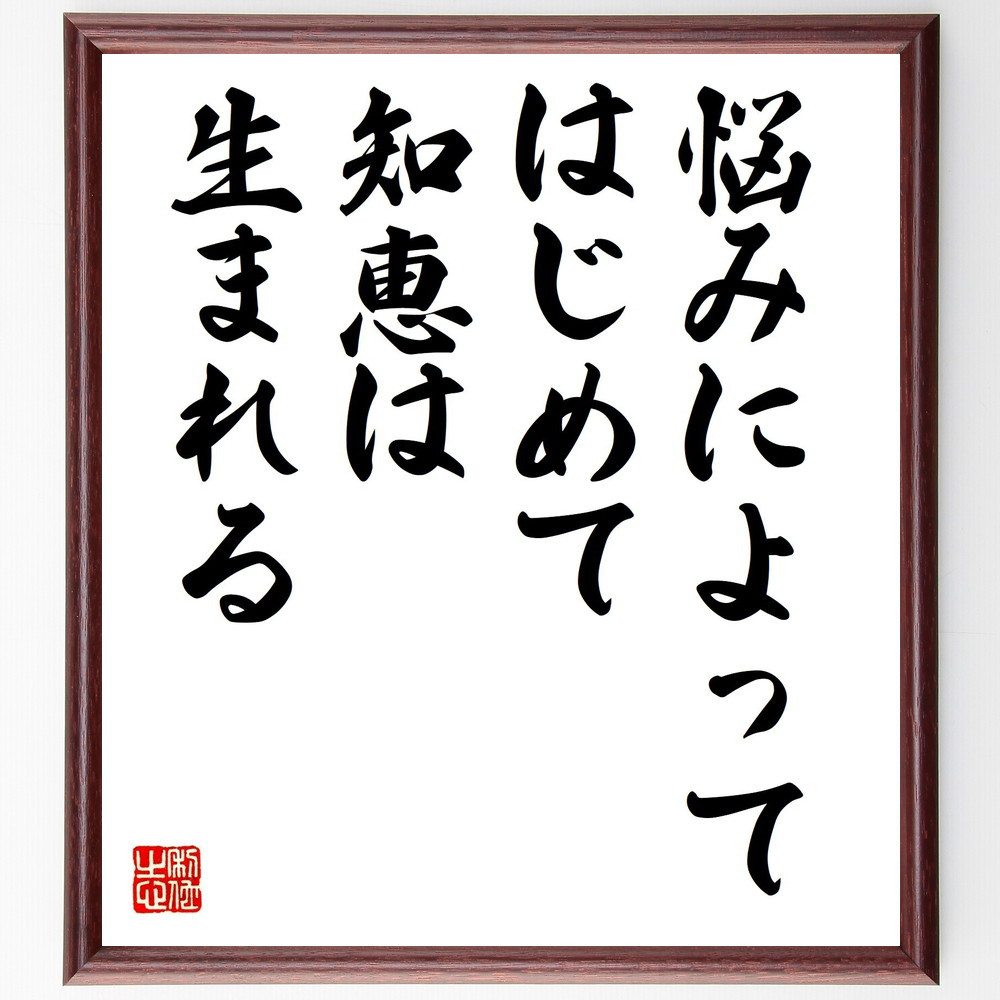 悩みによって
はじめて
知恵は
生まれる